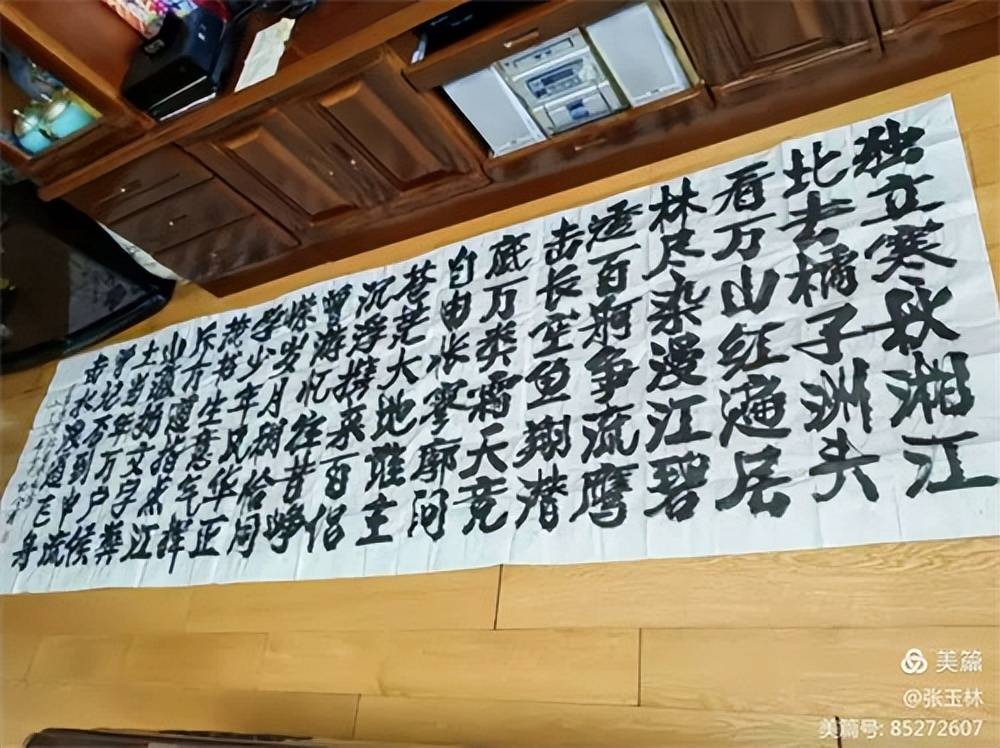 独立寒秋湘江
北去橘子洲头
看万山红遍层
林尽染漫江碧
透百舸争流鹰
击长空鱼翔潜
底万类霜天竞
自由怅寥廓问
苍茫大地谁主
沉浮携来百侣
曾游忆往昔峥
嵘岁月稠恰同
学少年风华正
茂书生意气挥
斥方遒指点江
山激扬文字粪
土当年万户侯
曾记否到中流
击水浪遏飞舟
美篇
@张玉林
美篇号: 85272607